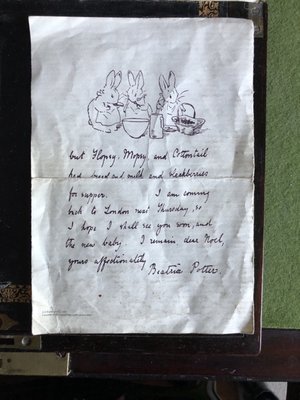 but Flopsy, Mopsy, and Cottontail
had bread and milk and blackberries
for supper. I am coming
back to London next Thursday, so
I hope I shall see you soon, and
the new baby. I remain dear Noel,
yours affectionately
Beatrix Potter.